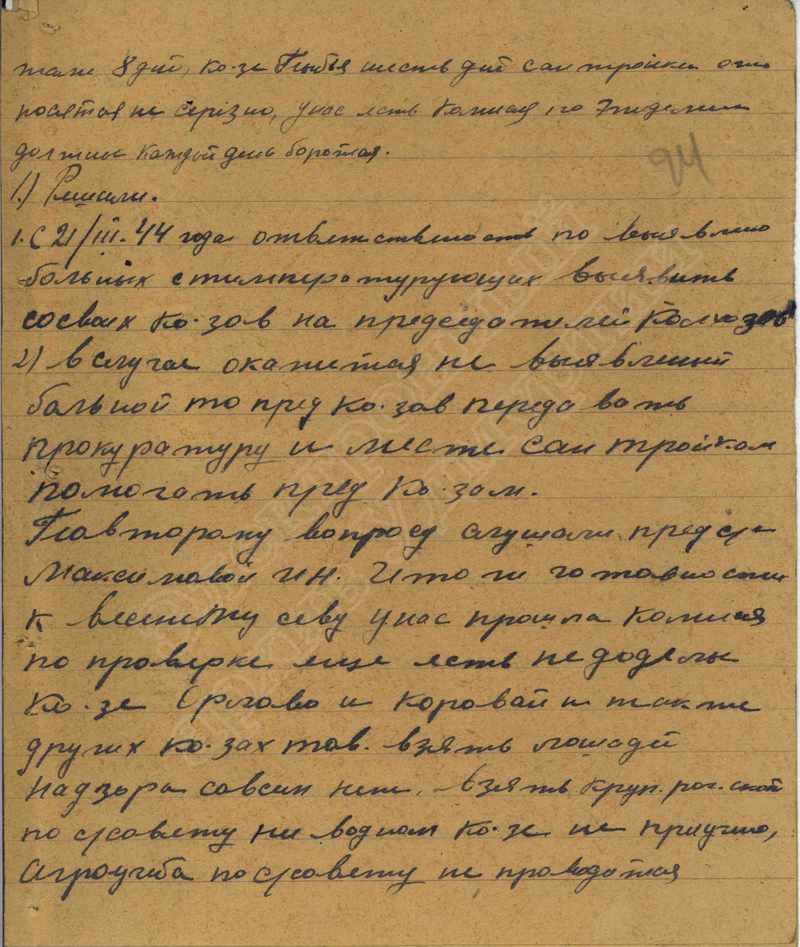 тали 8 дий, ко-зе шесть дий сан тройки отно
носятся не серізно, унас есть Комися по Эпидемии
должны каждый день боротся.
94
1.) Решили.
1. С 21/III.44 года ответственость по выявлению
больных с температурующих выявить
сосвоих ко-зов на председателей Колхозов
2) вслучае окажется не выявленый
больной то пред ко-зов передавать
прокуратуру и месте сан тройкам
помогать пред ко-зам.
Повторому вопросу слушали предс/с
Максимовой И Н. Итоги готовности
к весенему севу унас прошла Комися
по проверке еще есть недоделы
ко-зе Орлово и Коровай и также
других ко-зах тов. взять лошадй
надзора совсим нет. Взять круп. рог. скот
по с/совету ни водном ко-зе не приучено,
Агроучеба по с/совету не проводится